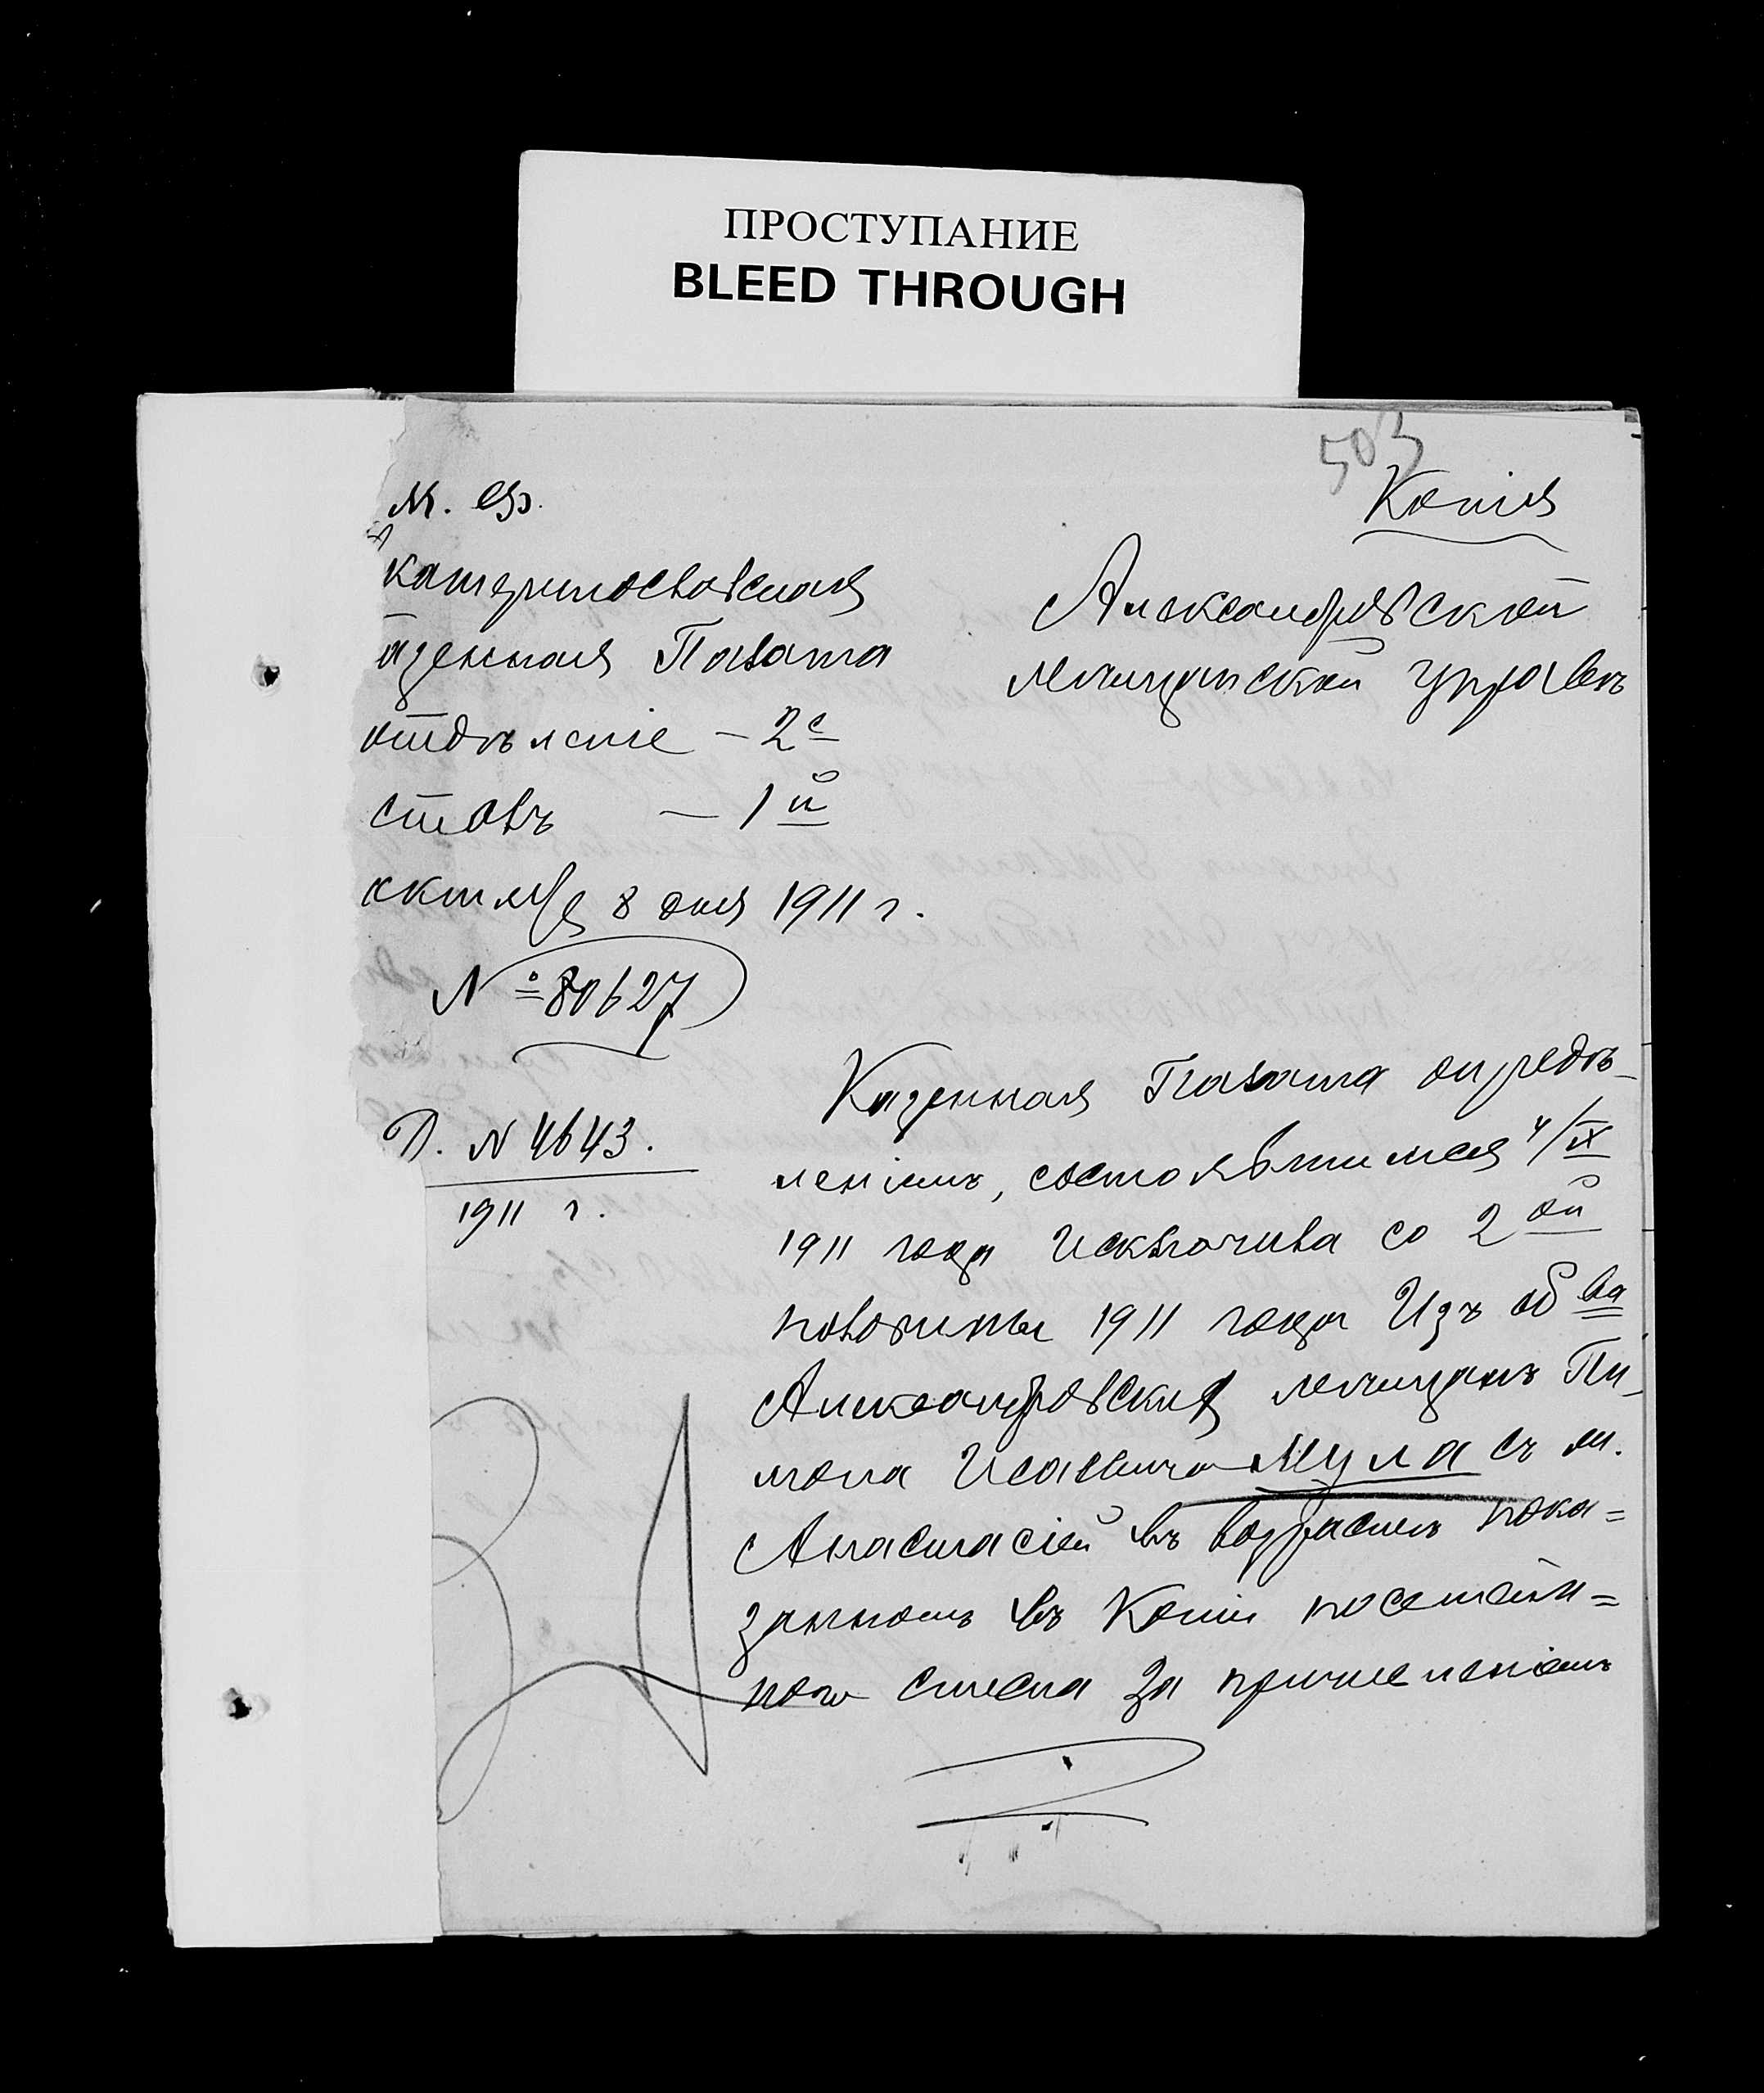 ПРОСТУПАНИЕ
BLEED THROUGH
503
Копія
М. Ф.
катеринославская
азенная Палата
отдѣленіе – 2е
столъ – 1й
октября 8 дня 1911 г.
№ 80627
Д. N 4643.
1911 г.
Александровской
Мѣщанской Управѣ
Казенная Палата опредѣ-
леніемъ, состоявшимся 4/IX
1911 года исключила со 2ой
половины 1911 года изъ об ва
Александровскихъ мѣщанъ Пи-
мона Исаевича Мула съ ж.
Анастасіей въ возрастѣ пока=
занномъ въ копіи посемейн=
ного списка за причисленіемъ